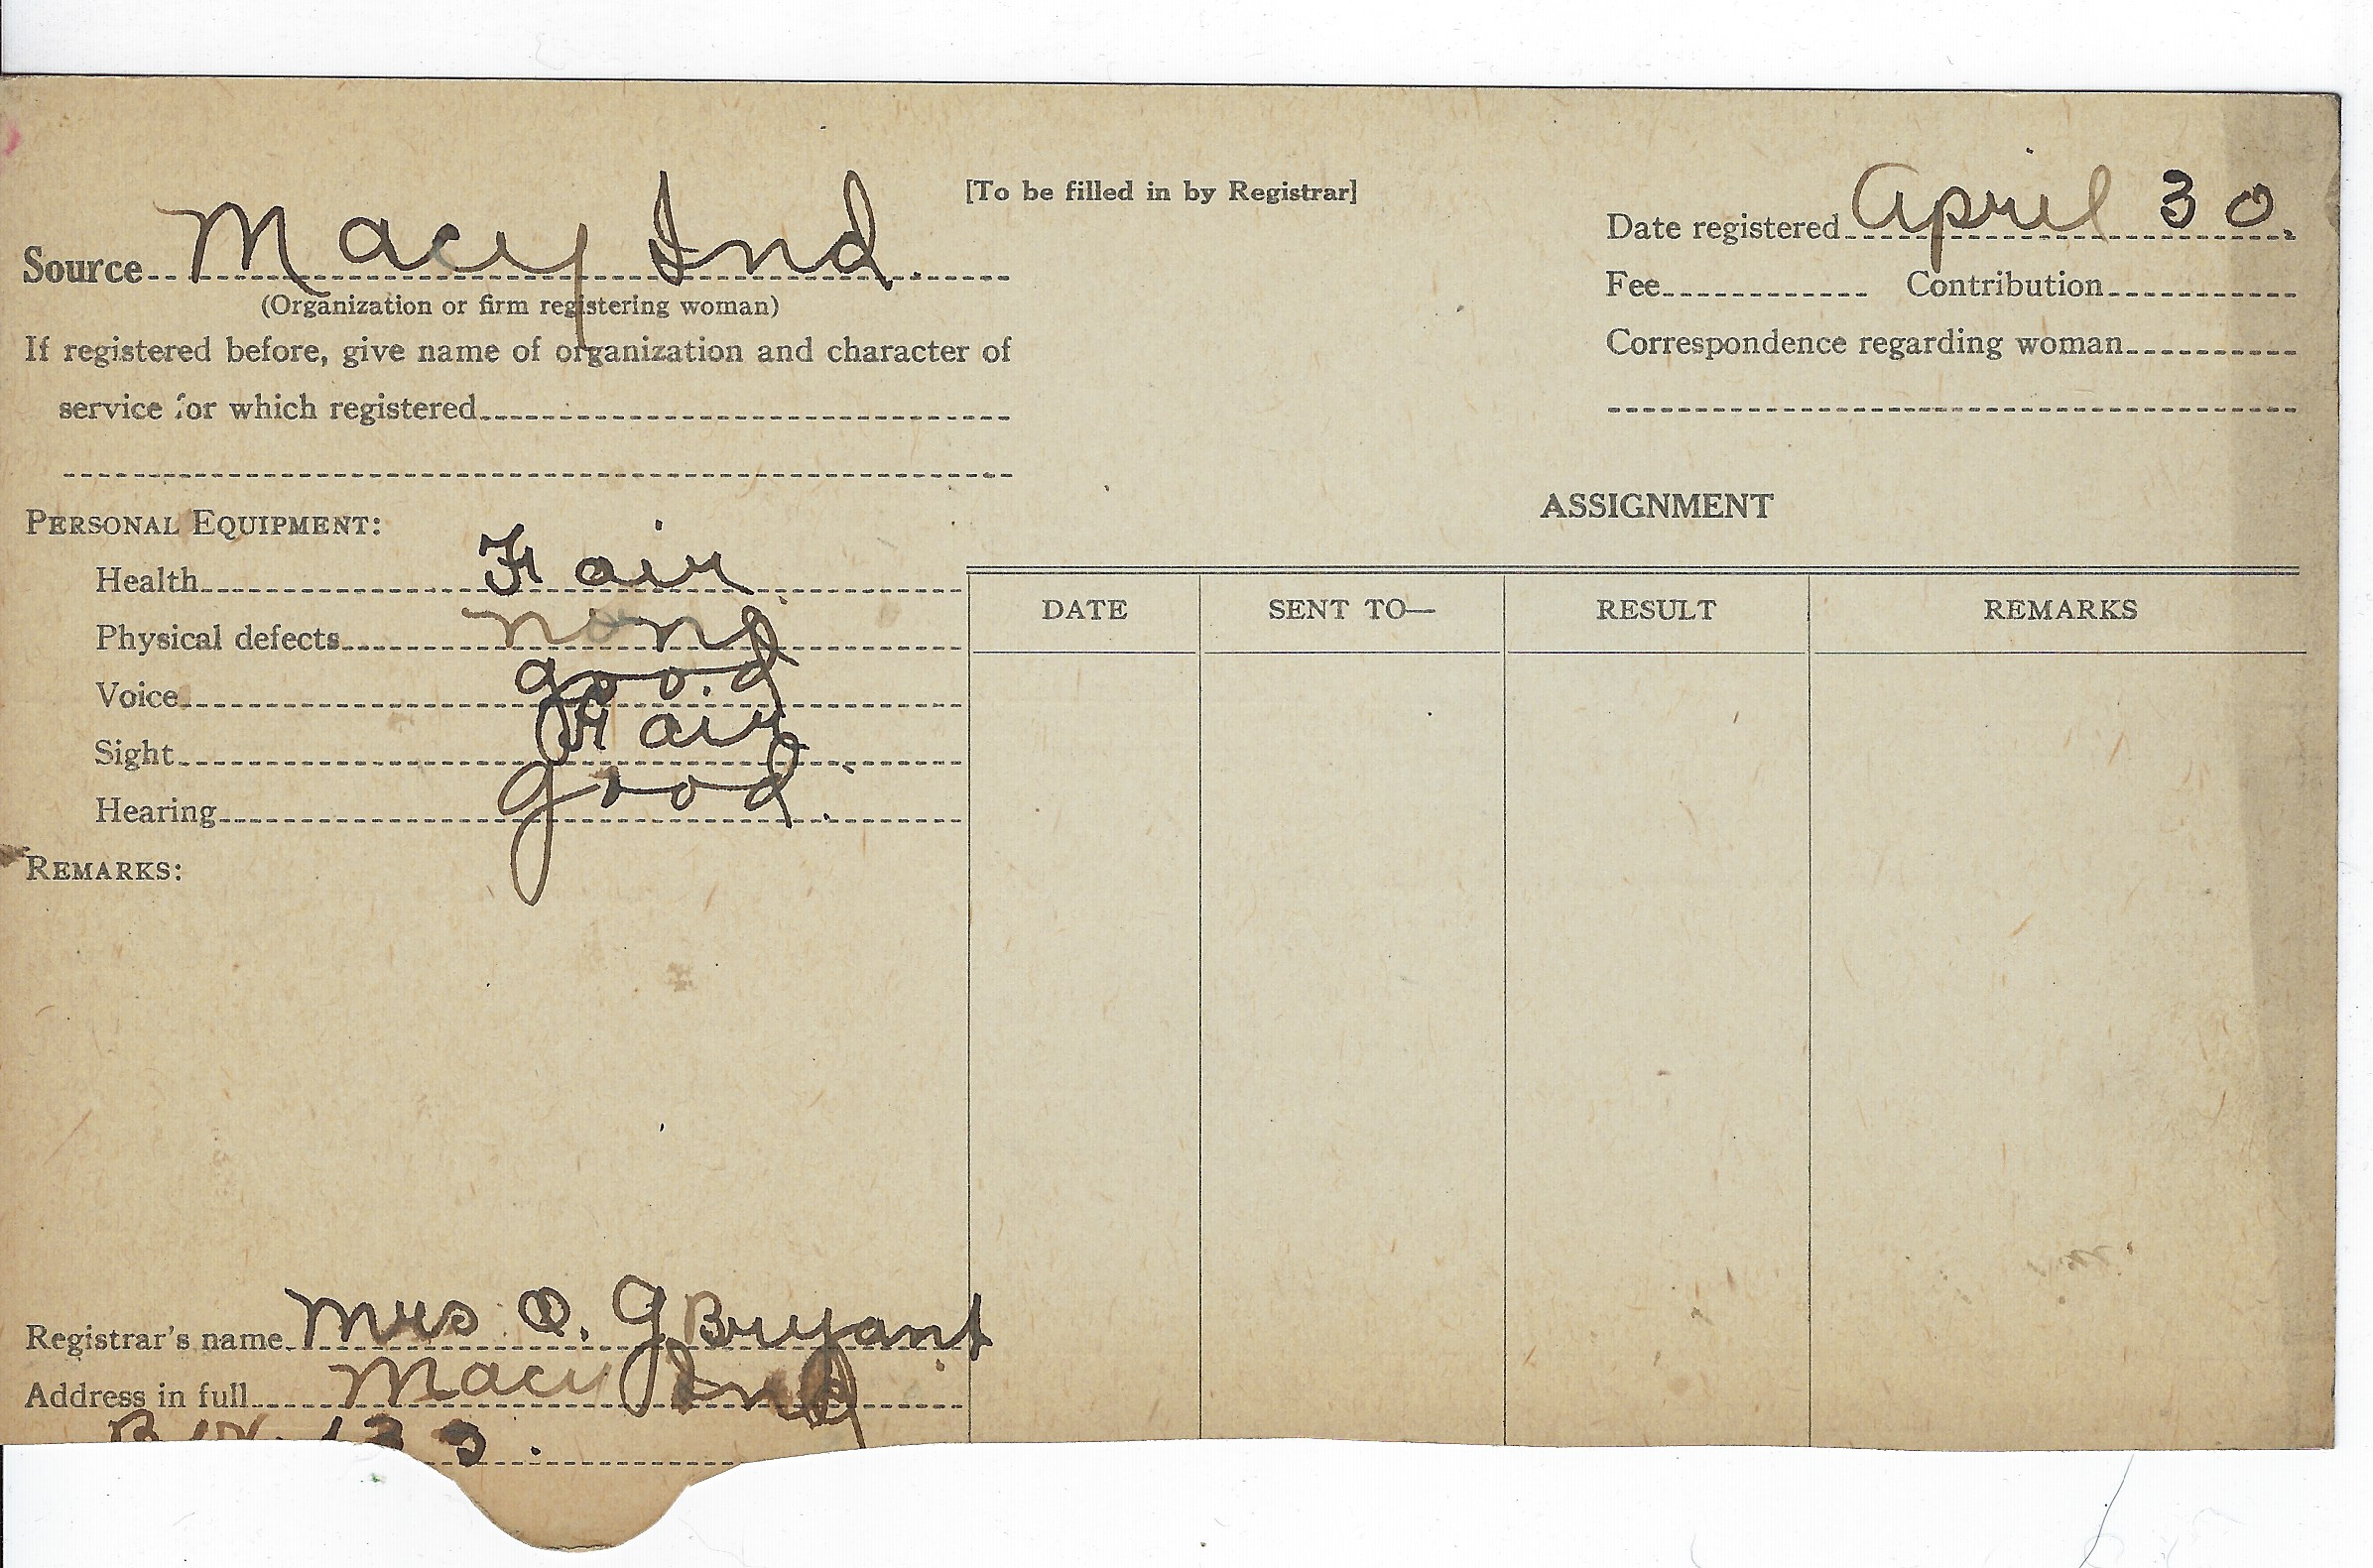 [To be filled in by Registrar]
Source Macy Ind.
(Organization or firm registering woman)
If registered before, give name of organization and character of
service for which registered
Date registered April 30.
Fee Contribution
Correspondence regarding woman
PERSONAL EQUIPMENT:
Health Fair
Physical defects none
Voice good
Sight Fair
Hearing good.
REMARKS:
ASSIGNMENT
DATE SENT TO— RESULT REMARKS
Registrar's name Mrs O. G Bryant
Address in full Macy Ind